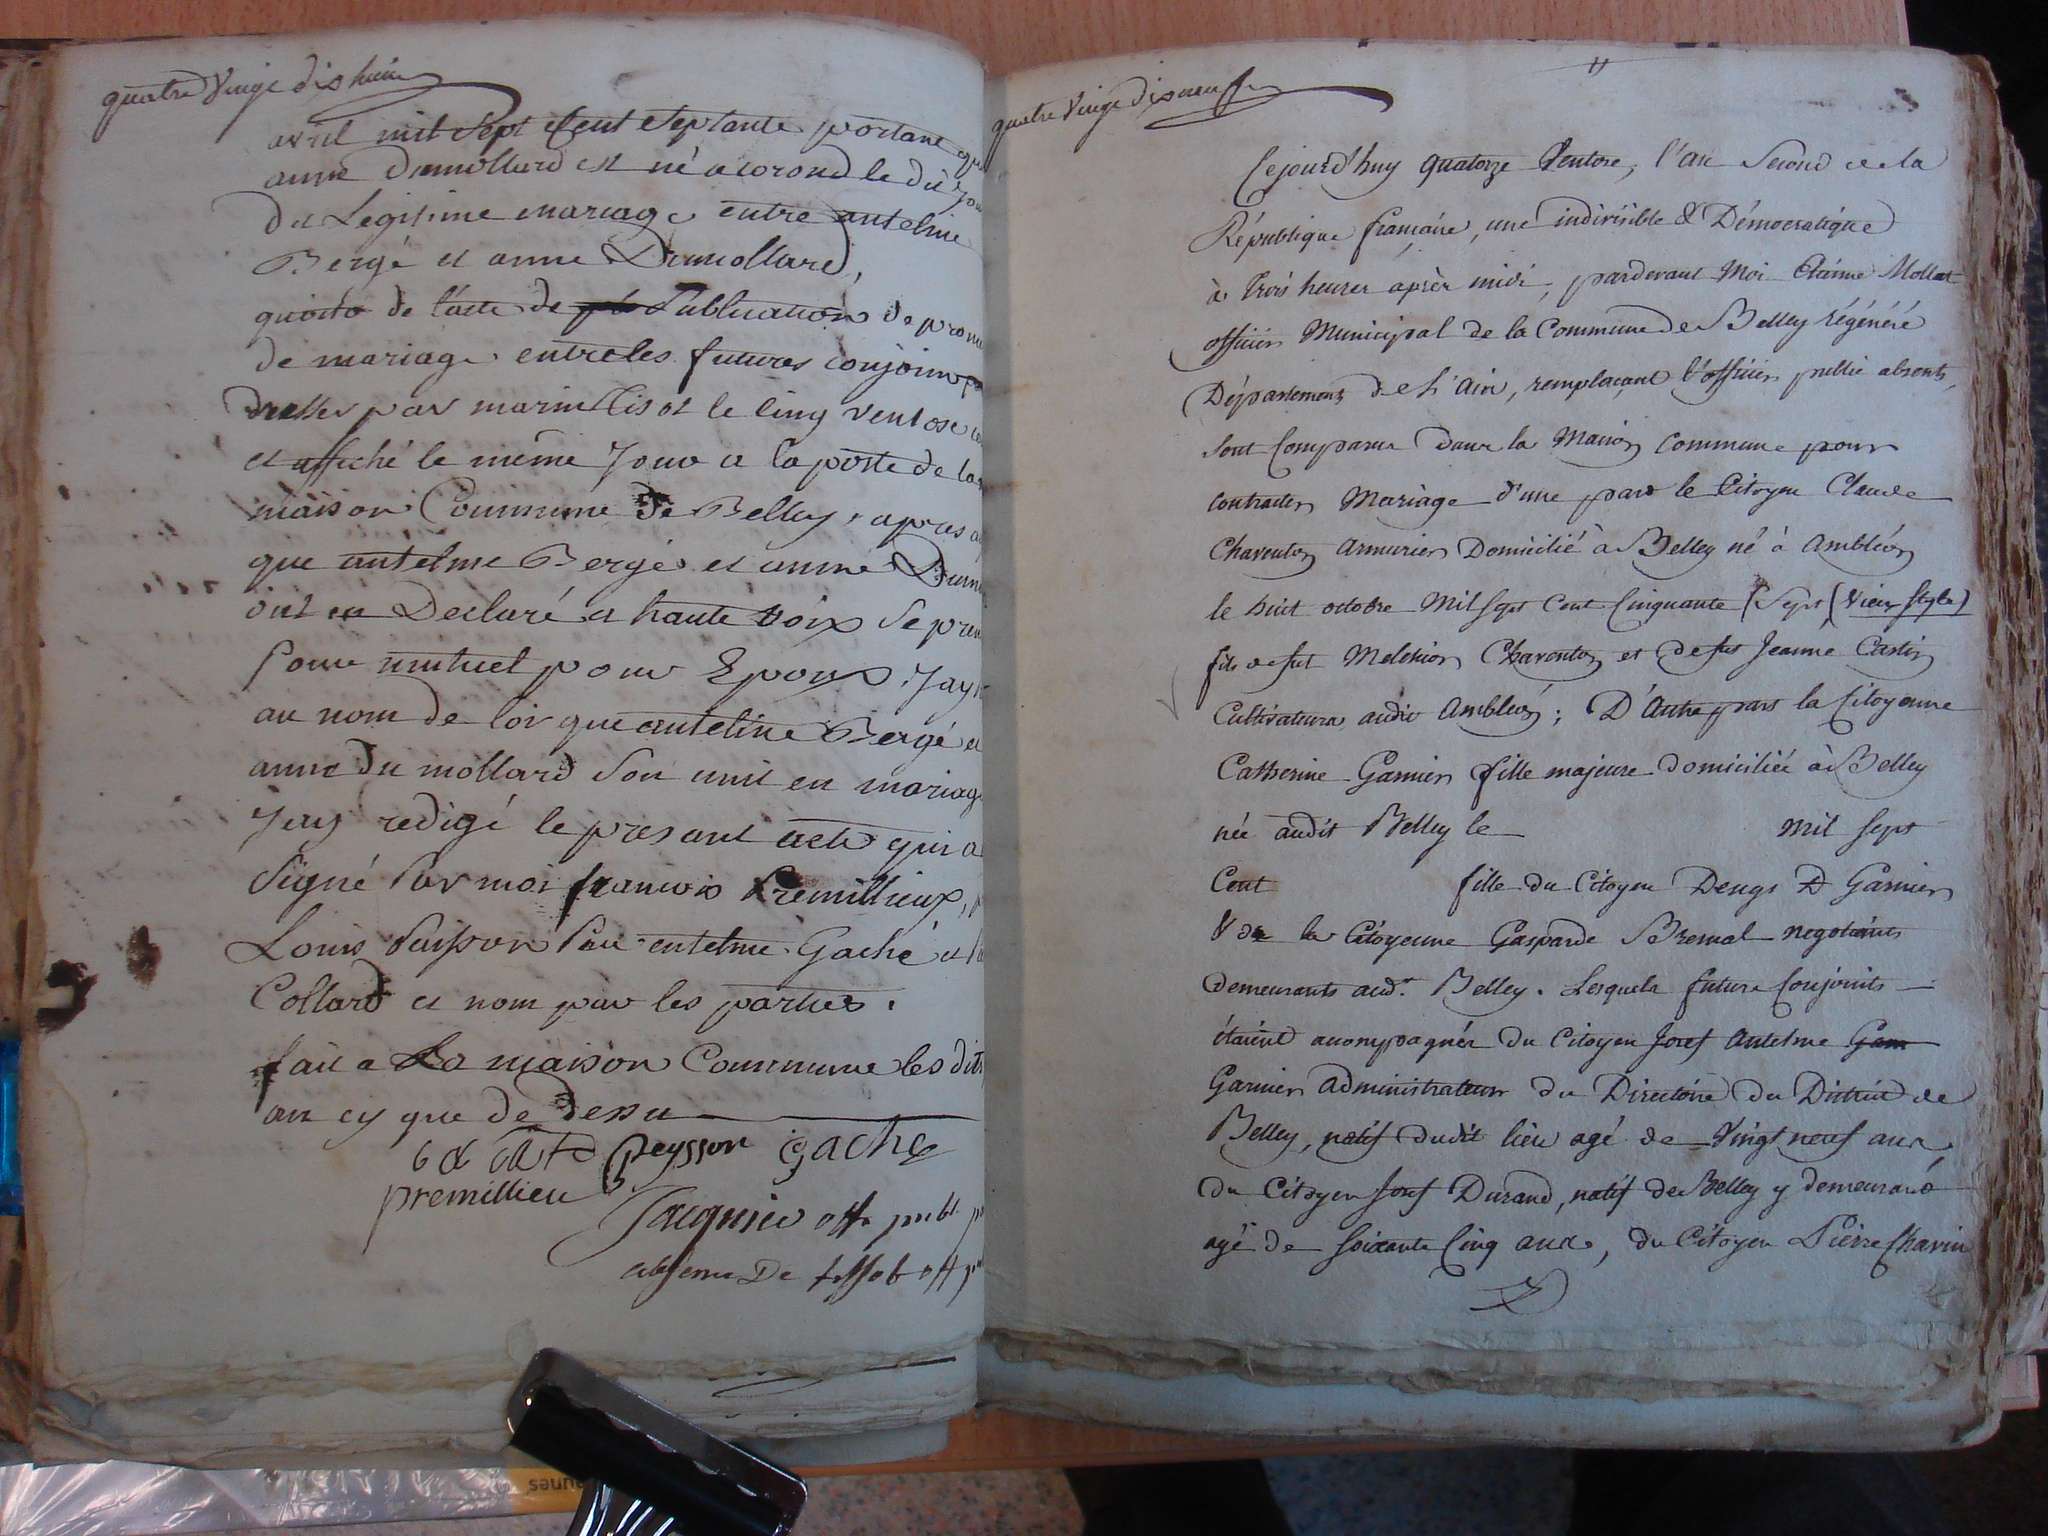 quatre Vingt dix huit
avril mil Sept Cent Septante portant que
anne Dumollard est né a corond le dit Jour
du Legitime mariage entre antelme
Bergé et anne Dumollard,
de l'acte de Publication de prom
de mariage entre les futures conjoint
dresser par le cinq ventose
et affiché le même Jour a la porte de la
maison Commune de Belley, apres
que antelme Bergé et anne Dum
ont eu Declaré a haute voix Se pren
mutuel pour Epoux, Jay
au nom de loy que antelme Bergé et
anne du mollard Son unit en mariage
Jay redigé le present acte qui a
Signé Par moi francois Premillieux,
Louis Peisson Par entelme Gaché et
Collard et nom par les parties.
fait a La maison Commune les dits
an cy que de dessu
peysson gache
premillieu
Jacquier off publ
absence De tissot off pu
quatre Vingt dix neuf
Cejourd'huy quatorze Ventose, l'an Second de la
République françaire, une indivisible & Démocratique
à trois heures après midi, pardevant Moi Etienne Mollet
officier Municipal de la Commune de Belley régénéré
Département de L'Ain, remplaçant l'officier public absent,
sont Comparus dans la Maison Commune pour
contracter Mariage d'une part le Citoyen Claude
Charenton Armurier Domicilié à Belley né à Ambléon
le huit octobre Mil sept Cent Cinquante Sept, (Vieux Style)
fils de fut Melchior Charenton et de fut Jeanne Carlin
Cultivateurs audit Ambléon; D'Autre part la Citoyenne
Catherine Garnier fille majeure domiciliée à Belley
née audit Belley le mil sept
Cent fille du Citoyen Denys D Garnier
& de la Citoyenne Gasparde Bremal negotiants
demeurants aud.t Belley. Lesquels futurs Conjoints
étaient acompagnés du Citoyen Josef Antelme Garn
Garnier administrateur du Directoire du District de
Belley, natif dudit lieu agé de Vingt neuf ans,
du Citoyen Josef Durand, natif de Belley y demeurant
agé de soixante Cinq ans, du Citoyen Pierre Charin